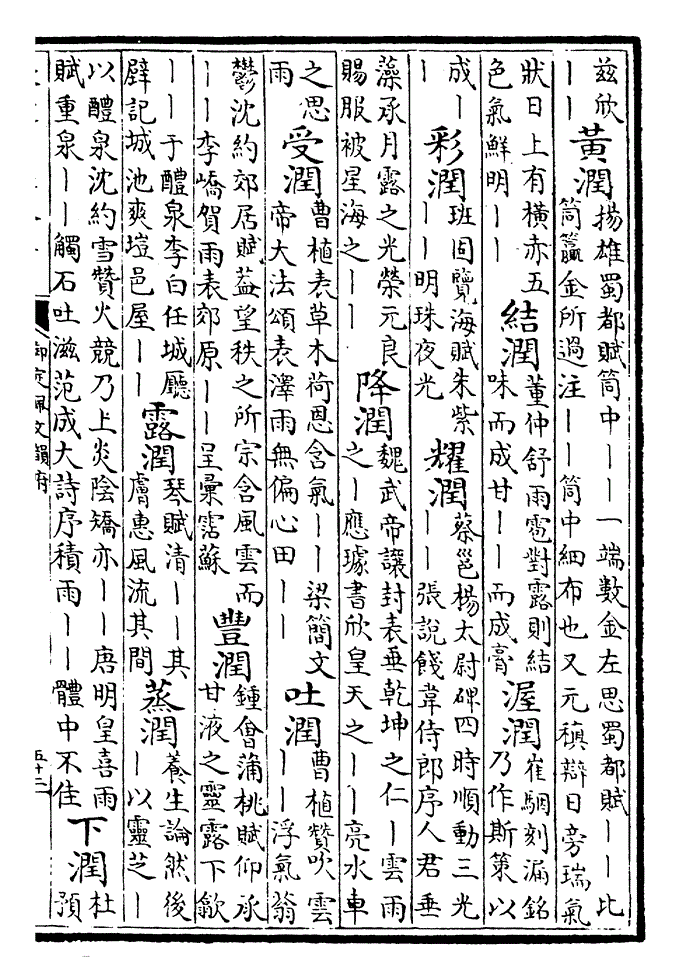 茲欣
｜｜
黃潤
揚雄蜀都賦筒中｜｜一端數金左思蜀都賦｜｜比
筒籯金所過注｜｜筒中細布也又元稹辯日旁瑞氣
狀日上有橫赤五
色氣鮮明｜｜
結潤
董仲舒雨雹對露則結
味而成甘｜｜而成膏
渥潤
崔駰刻漏銘
乃作斯策以
成｜
｜
彩潤
班固覽海賦朱紫
｜｜明珠夜光
耀潤
蔡邕楊太尉碑四時順動三光
｜｜張說餞韋侍郎序人君垂
藻承月露之光榮元良
賜服被星海之｜｜
降潤
魏武帝讓封表垂乾坤之仁｜雲雨
之｜應璩書欣皇天之｜｜亮水車
之思
雨
受潤
曹植表草木荷恩含氣｜｜梁簡文
帝大法頌表澤雨無偏心田｜｜
吐潤
曹植贊吹雲
｜｜浮氣蓊
鬱沈約郊居賦益望秩之所宗含風雲而
｜｜李嶠賀雨表郊原｜｜呈彙霑蘇
豐潤
鍾會蒲桃賦仰承
甘液之靈露下歙
｜｜于醴泉李白任城廳
壁記城池爽塏邑屋｜｜
露潤
琴賦清｜｜其
膚惠風流其間
蒸潤
養生論然後
｜以靈芝｜
以醴泉沈約雪贊火競乃上炎陰矯亦｜｜唐明皇喜雨
賦重泉｜｜觸石吐滋范成大詩序積雨｜｜體中不佳
下潤
杜
預
御定佩文韻府
五十二